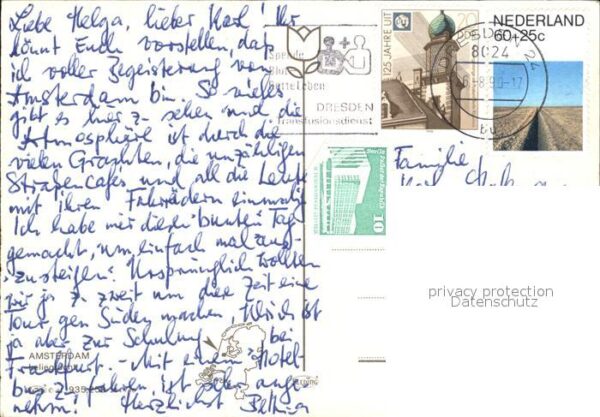 Liebe Helga, lieber Karl! Ihr
könnt Euch vorstellen, daß
ich voller Begeisterung von
Amsterdam bin. So vieles
gibt es hier zu sehen und die
Atmosphäre ist durch die
vielen Grachten, die unzähligen
Straßencafés und all die Leute
mit ihren Fahrrädern einmalig
Ich habe mir diesen "bunten" Tag
gemacht, um einfach mal aus-
zusteigen. Ursprünglich wollten
wir ja z. zweit um diese Zeit eine
Tour gen Süden machen, Ulrich ist
ja aber zur Schulung bei
Frankfurt. - Mit einem Hotel-
bus z. fahren, ist sehr ange-
nehm! Herzlichst
AMSTERDAM
Spende
Blut
rette Leben
DRESDEN
Transfusionsdienst
125 JAHRE UIT
20
DRESDEN
8024
NEDERLAND
60+25c
10
Familie
privacy protection
Datenschutz